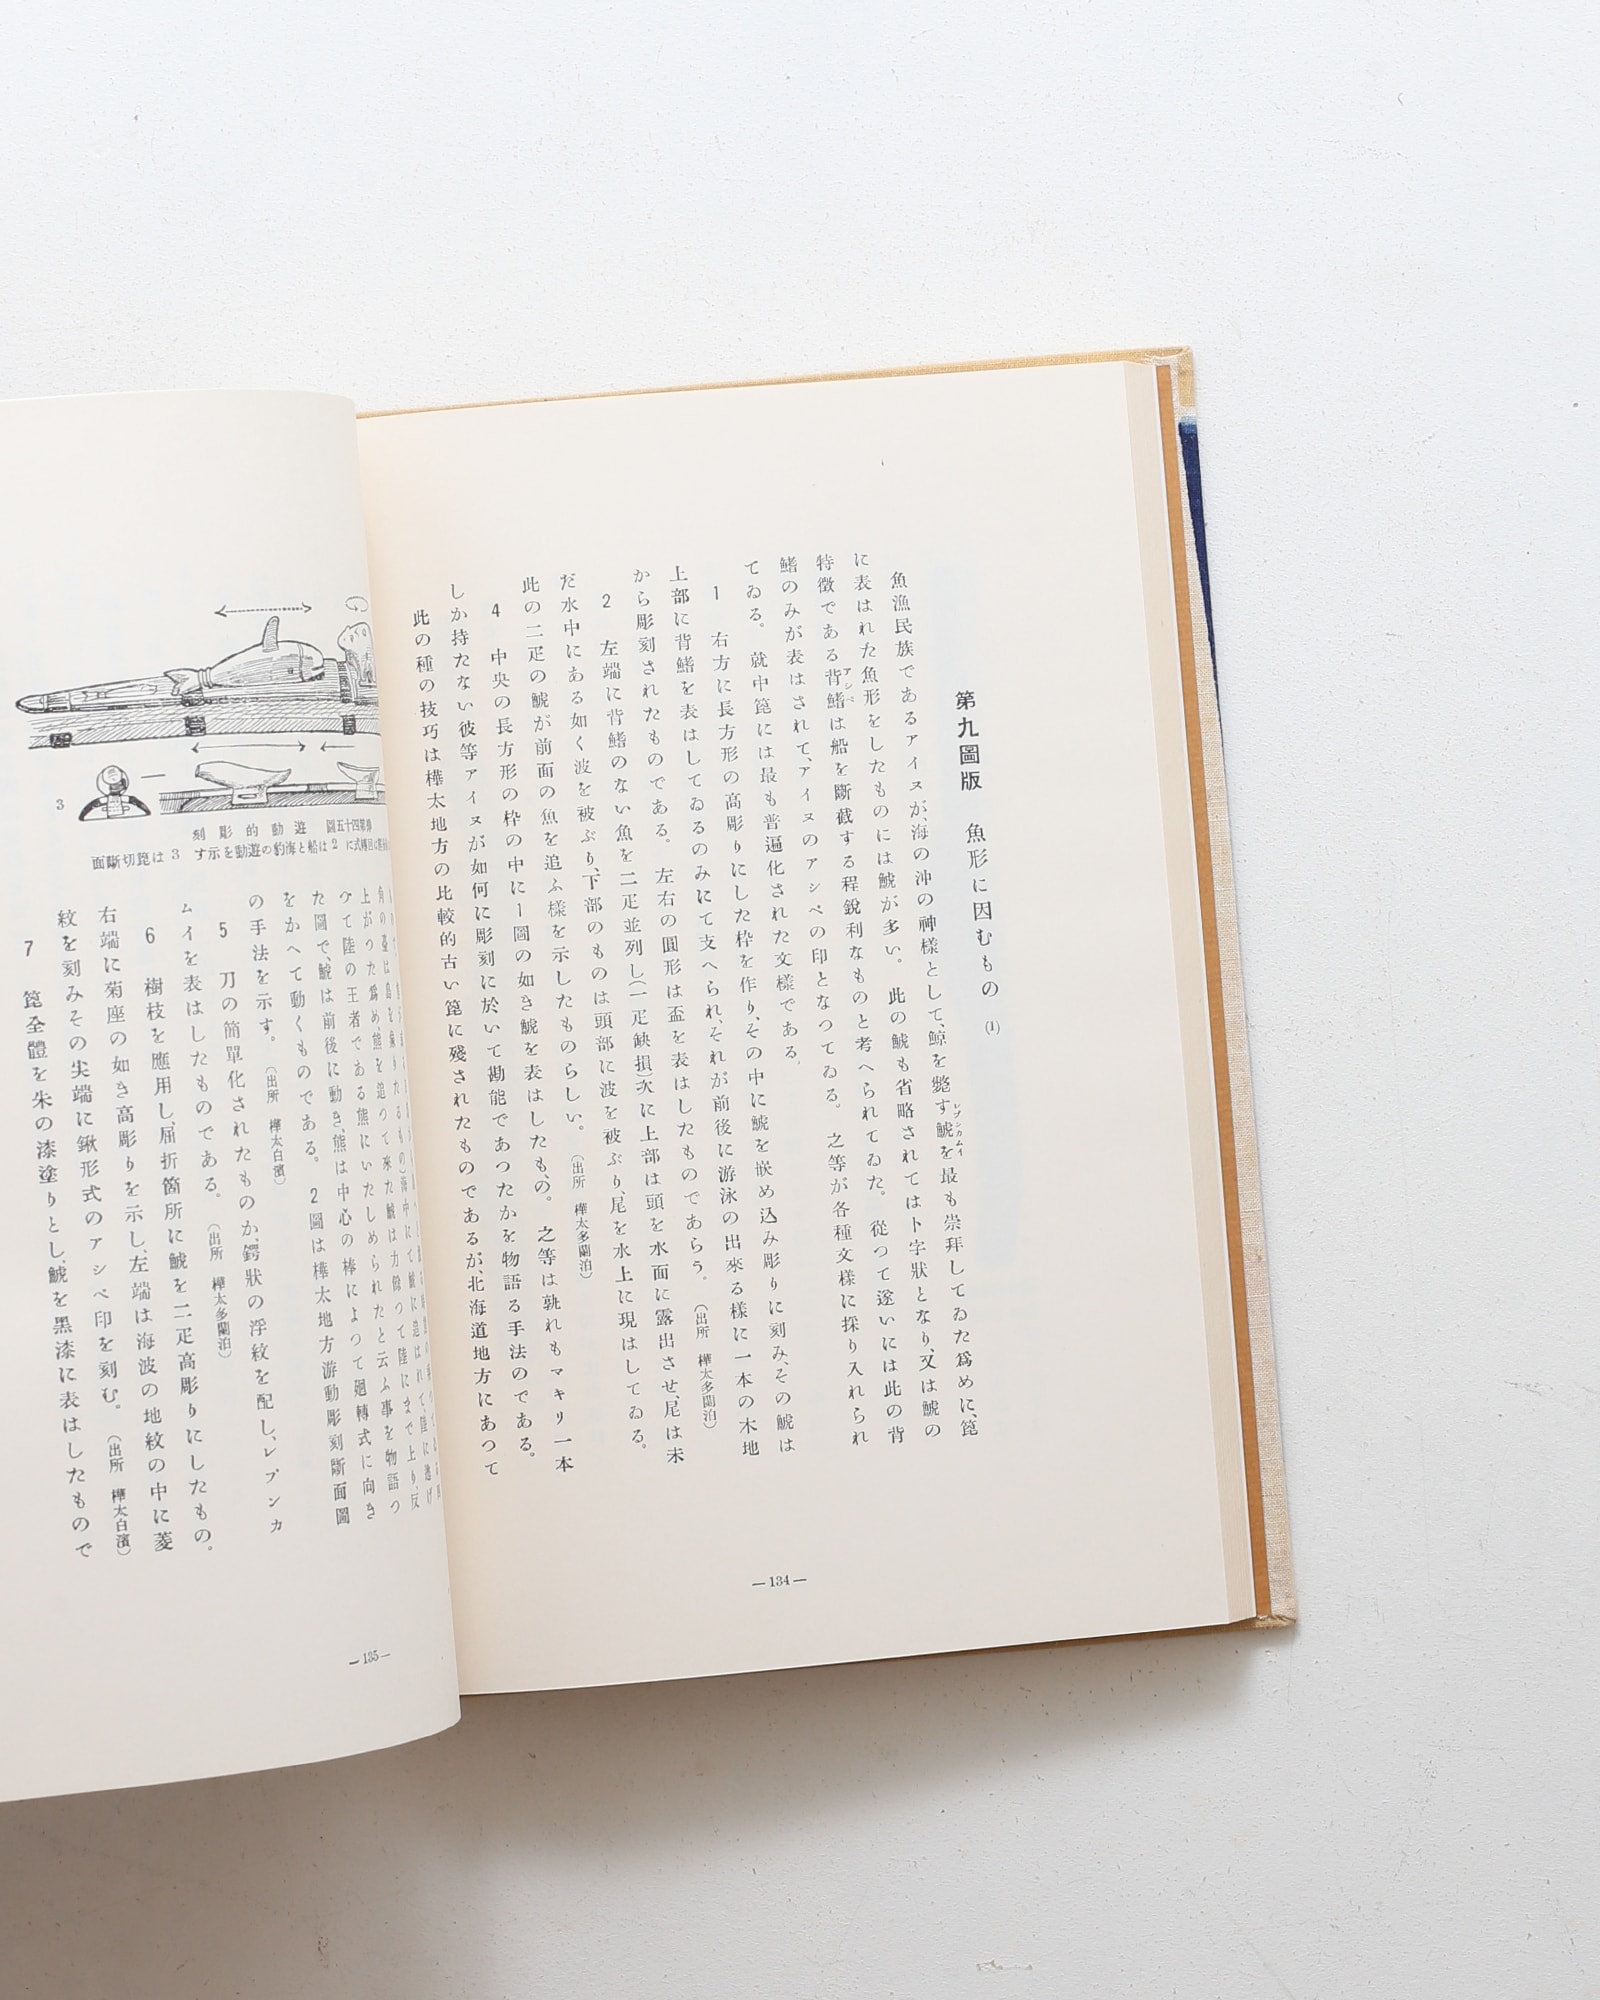 第九圖版　魚形に因むもの　(1)
魚漁民族であるアイヌが、海の沖の神樣として、鯨を斃す鯱を最も崇拜してゐた爲めに、箆
レプンカムイ
に表はれた魚形をしたものには鯱が多い。此の鯱も省略されてはト字狀となり、又は鯱の
特徴である背鰭は船を斷截する程銳利なものと考へられてゐた。從つて遂いには此の背
アシペ
鰭のみが表はされて、アイヌのアシペの印となつてゐる。之等が各種文樣に採り入れられ
てゐる。就中箆には最も普遍化された文樣である。
1　右方に長方形の高彫りにした枠を作り、その中に鯱を嵌め込み彫りに刻み、その鯱は
上部に背鰭を表はしてゐるのみにて支へられ、それが前後に游泳の出來る樣に一本の木地
から彫刻されたものである。左右の圓形は盃を表はしたものであらう。（出所　樺太多蘭泊）
2　左端に背鰭のない魚を二疋並列し（一疋缺損）次に上部は頭を水面に露出させ、尾は未
だ水中にある如く波を被ぶり、下部のものは頭部に波を被ぶり、尾を水上に現はしてゐる。
此の二疋の鯱が前面の魚を追ふ樣を示したものらしい。（出所　樺太多蘭泊）
4　中央の長方形の枠の中に1圖の如き鯱を表はしたもの。之等は孰れもマキリ一本
しか持たない彼等アイヌが如何に彫刻に於いて勘能であつたかを物語る手法のである。
此の種の技巧は樺太地方の比較的古い箆に殘されたものであるが、北海道地方にあつて
―134―
3
遊動的彫刻
す示を動遊の豹海と船は2
面斷切箆は3
上がつた爲め、熊を追つて來た鯱は力餘つて陸にまで上り、反
つて陸の王者である熊にいためられたと云ふ事を物語つ
た圖で、鯱は前後に動き、熊は中心の棒によつて廻轉式に向き
をかへて動くものである。2圖は樺太地方游動彫刻斷面圖
の手法を示す。（出所　樺太白濱）
5　刀の簡單化されたものか、鍔狀の浮紋を配し、レプンカ
ムイを表はしたものである。（出所　樺太多蘭泊）
6　樹枝を應用し、屈折箇所に鯱を二疋高彫りにしたもの。
右端に菊座の如き高彫りを示し、左端は海波の地紋の中に菱
紋を刻みその尖端に鍬形式のアシペ印を刻む。（出所　樺太白濱）
7　箆全體を朱の漆塗りとし、鯱を黑漆に表はしたもので
―135―